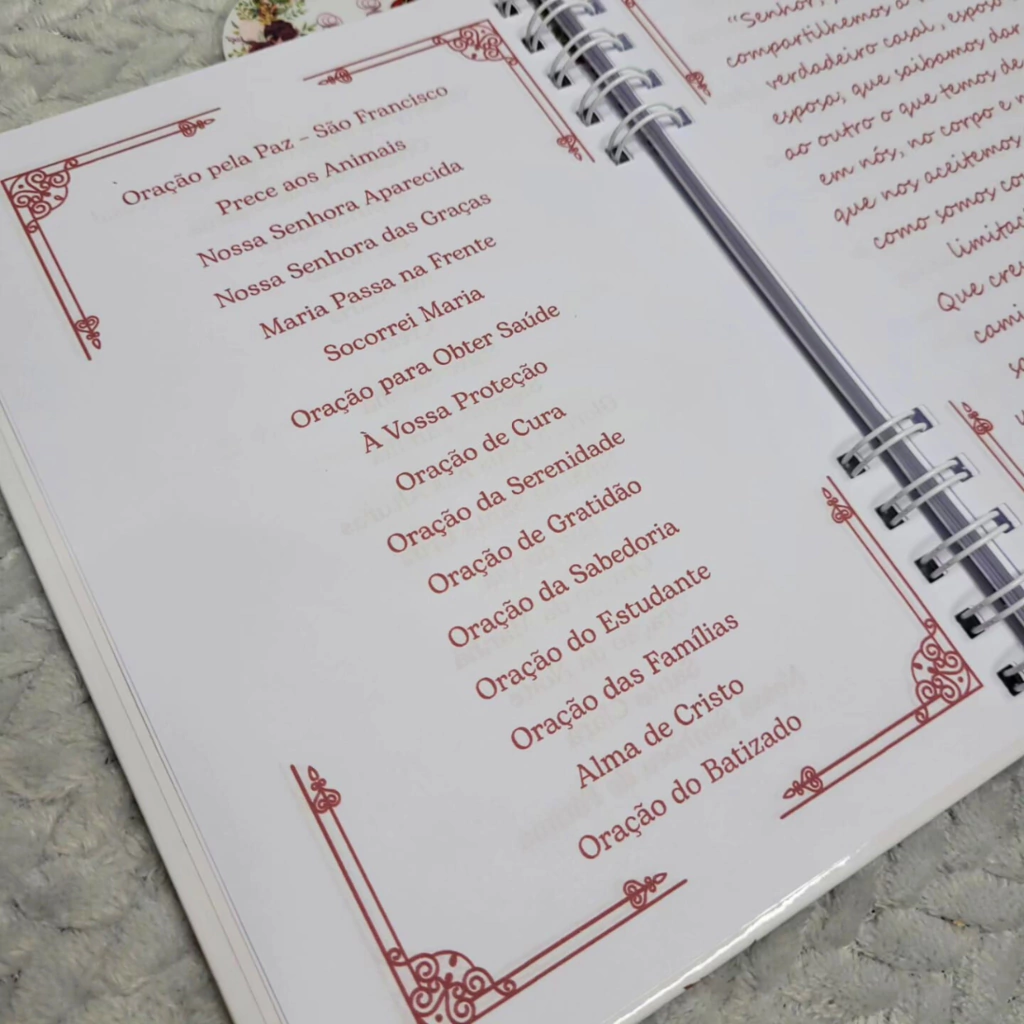 Oração pela Paz - São Francisco
Prece aos Animais
Nossa Senhora Aparecida
Nossa Senhora das Graças
Maria Passa na Frente
Socorrei Maria
Oração para Obter Saúde
À Vossa Proteção
Oração de Cura
Oração da Serenidade
Oração de Gratidão
Oração da Sabedoria
Oração do Estudante
Oração das Famílias
Alma de Cristo
Oração do Batizado
"Senhor,
compartilhemos a
verdadeiro casal, esposo
esposa, que saibamos dar
ao outro o que temos de
em nós, no corpo e
que nos aceitemos
como somos
Que